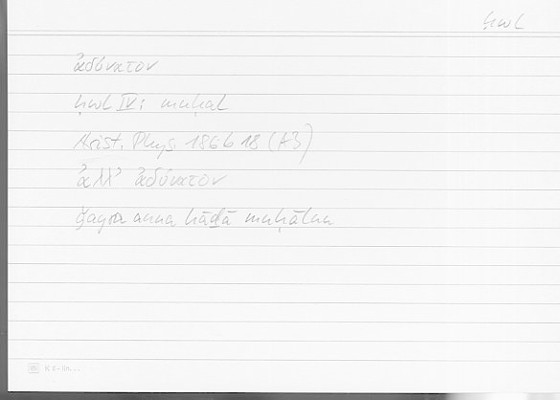 ḥwl
ἀδύνατον
ḥwl IV: muḥāl
Arist. Phys. 186b18 (A3)
ἀλλ' ἀδύνατον
ġayra anna hāḏā muḥālun